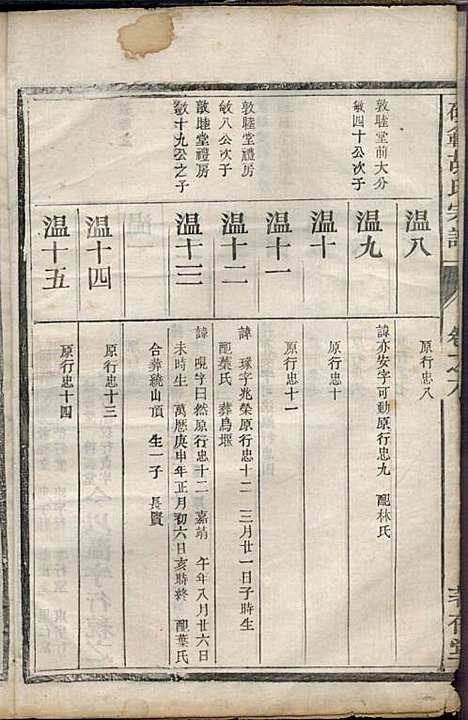 胡氏宗譜
卷之
温八
原行忠八
敦睦堂前大分
敏四十公次子
温九
諱亦安字可動原行忠九 配林氏
温十
原行忠十
温十一
原行忠十一
敦睦堂禮房
敏八公次子
温十二
諱 字兆榮原行忠十二 三月廿一日子時生
配葉氏 葬烏堰
敦睦堂禮房
敏十九公之子
温十三
諱 字日然原行忠十二 嘉靖 午年八月廿六日
未時生 萬曆庚申年正月初六日亥時終 配葉氏
合葬繞山頂 生一子 長賓
温十四
原行忠十三
温十五
原行忠十四